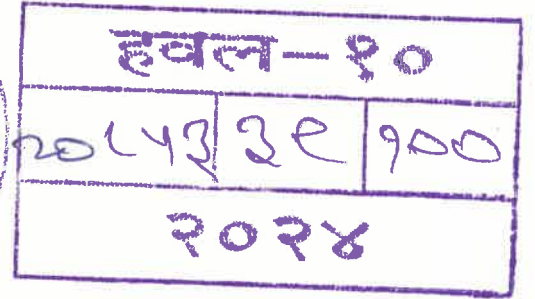 हवल-१०
२०८५३ ३९ १००
२०२४